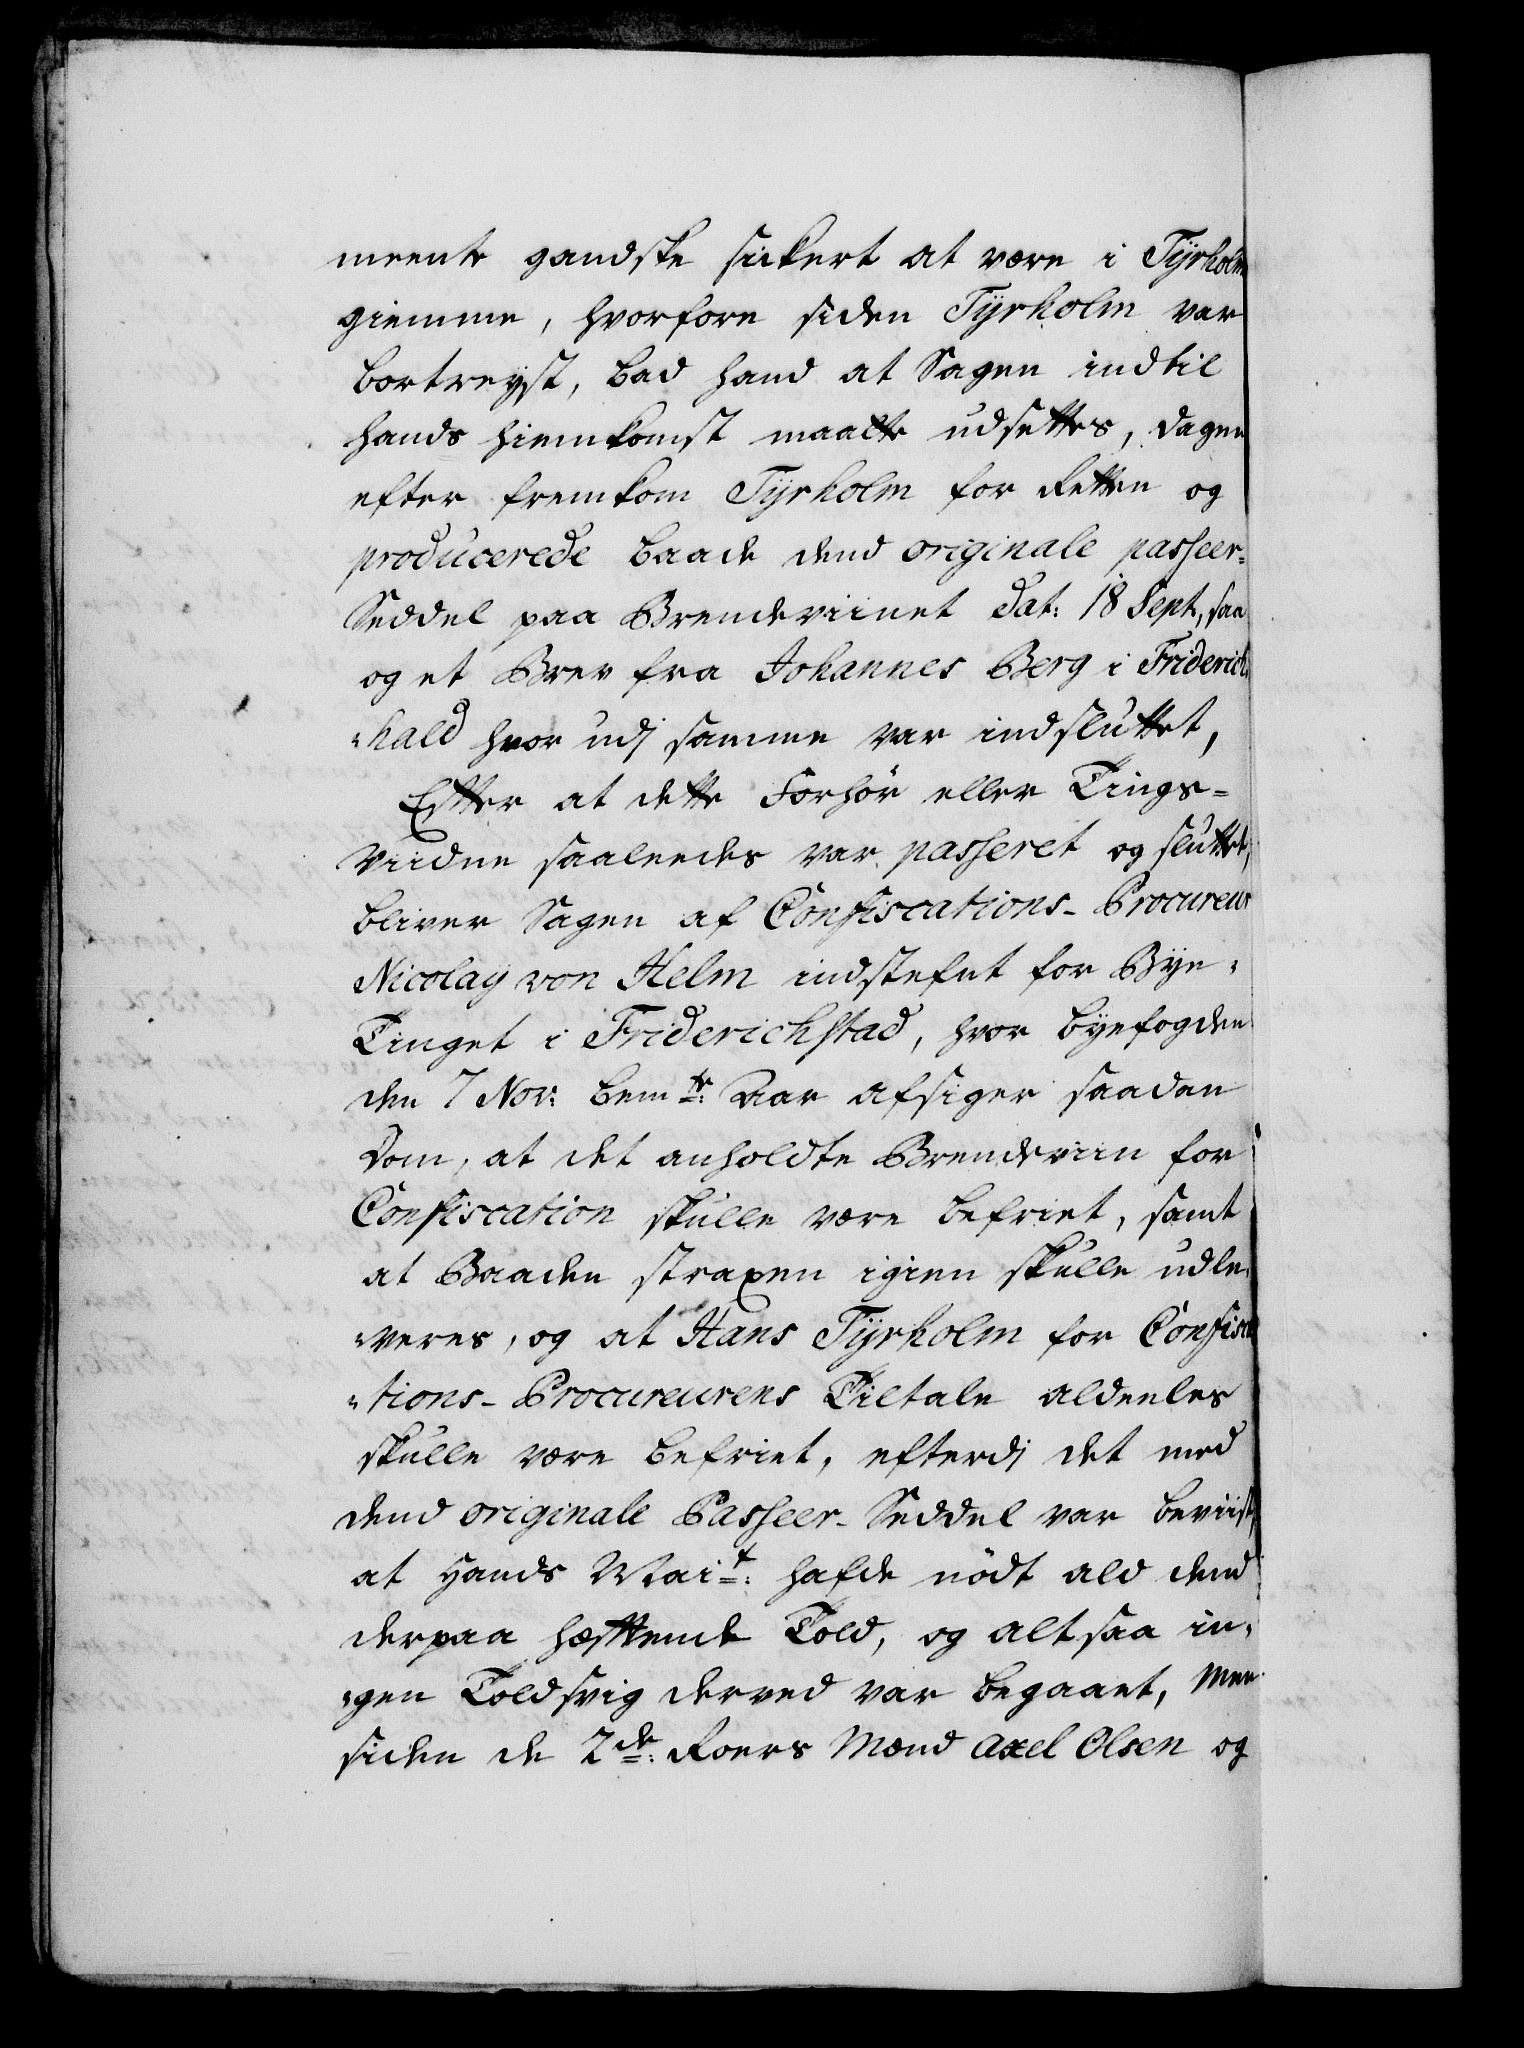 meente gandske sickert at være i Tyrholm
giemme, hvorfore siden Tyrholm var
bortreyst, bad hand at Sagen indtil
hands hiemkomst maatte udsettes, dagen
efter fremkom Tyrholm for Retten og
producerede baade dend originale passeer=
Seddel paa Brendeviinet dat: 18 Sept, saa
og et Brev fra Johannes Berg i Friderich
"hald hvor udj samme var indsluttet,
Efter at dette Forhör eller Tings=
Viidne saaleedes var passeret og sluttet,
bliver Sagen af Confiscations-Procureur
Nicolay von Helm indstefnt for Bye=
Tinget i Friderichstad, hvor byefogden
den 7 Nov: bemte: Aar afsiger saadan
Dom, at det anholdte Brendeviin for
Confiscation skulle være befriet, samt
at Baaden straxen igien skulle udle=
"veres, og at Hans Tyrholm for Confisca
"tions-Procureurens Tiltale aldeeles
skulle være befriet, efterdj det med
dend originale Passeer-Seddel var beviist,
at Hands Mait: hafde nödt ald dend
derpaa hæftende Told, og altsaa in=
"gen Toldsvig derved var begaaet, Men
siden de 2de: Roers Mænd Axel Olsen og